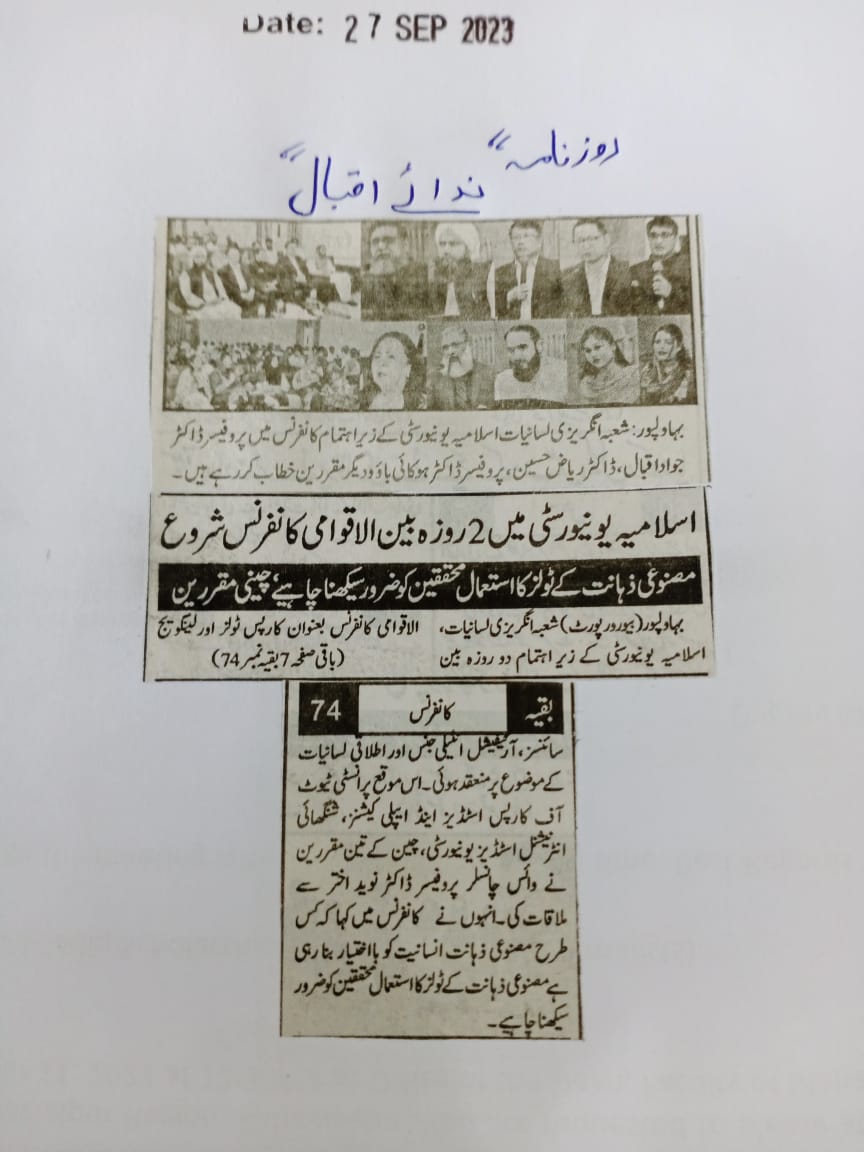 Date: 27 SEP 2023
روزنامہ "
ندائے اقبال"
بہاولپور: شعبہ انگریزی لسانیات اسلامیہ یونیورسٹی کے زیر اہتمام کانفرنس میں پروفیسر ڈاکٹر
جواد اقبال، ڈاکٹر ریاض حسین، پروفیسر ڈاکٹر ہوکائی باؤ و دیگر مقررین خطاب کر رہے ہیں۔
اسلامیہ یونیورسٹی میں 2 روزہ بین الاقوامی کانفرنس شروع
مصنوعی ذہانت کے ٹولز کا استعمال محققین کو ضرور سیکھنا چاہیے، چینی مقررین
بہاولپور (بیورو رپورٹ) شعبہ انگریزی لسانیات،
اسلامیہ یونیورسٹی کے زیر اہتمام دو روزہ بین
الاقوامی کانفرنس بعنوان کارپس ٹولز اور لینگویج
(باقی صفحہ 7 بقیہ نمبر 74)
بقیہ کانفرنس 74
سائنسز، آرٹیفیشل انٹیلی جنس اور اطلاقی لسانیات
کے موضوع پر منعقد ہوئی۔ اس موقع پر انسٹی ٹیوٹ
آف کارپس اسٹڈیز اینڈ ایپلی کیشنز، شنگھائی
انٹرنیشنل اسٹڈیز یونیورسٹی، چین کے تین مقررین
نے وائس چانسلر پروفیسر ڈاکٹر نوید اختر سے
ملاقات کی۔ انہوں نے کانفرنس میں کہا کہ کس
طرح مصنوعی ذہانت انسانیت کو بااختیار بنا رہی
ہے مصنوعی ذہانت کے ٹولز کا استعمال محققین کو ضرور
سیکھنا چاہیے۔